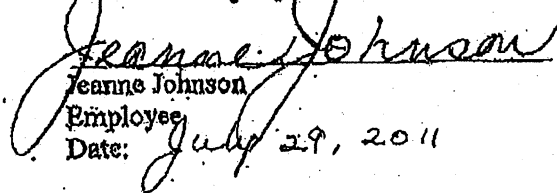 Jeanne Johnson
Jeanne Johnson
Employee
Date: July 29, 2011